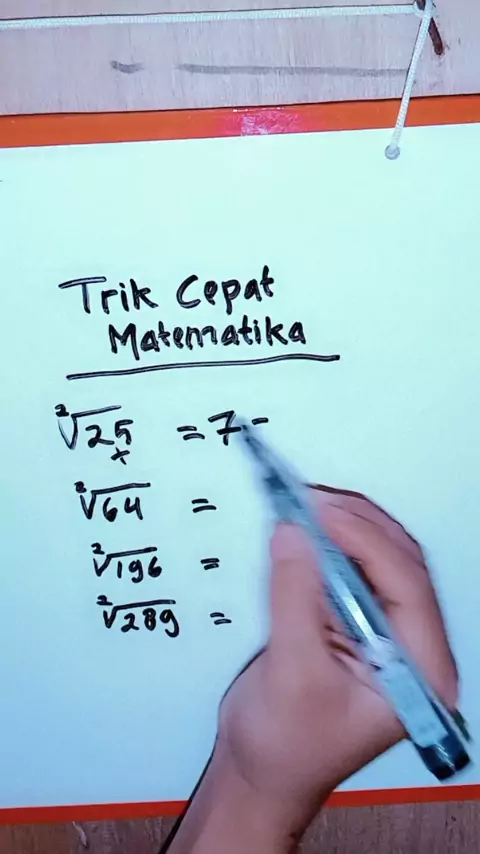 Trik Cepat
Matematika
²√25 = 7-
+
²√64 =
²√196 =
²√289 =